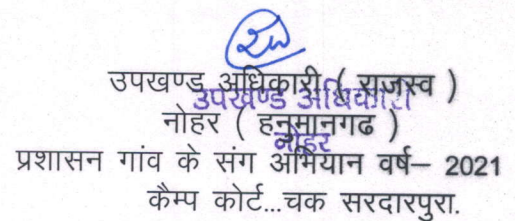 उपखण्ड अधिकारी ( राजस्व )
उपखण्ड अधिकारी
नोहर ( हनुमानगढ )
नोहर
प्रशासन गांव के संग अभियान वर्ष– 2021
कैम्प कोर्ट...चक सरदारपुरा.